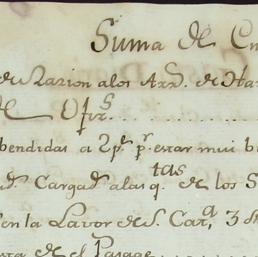 Suma de
de Razion a los Arr.s de
Of.s
bendidas a 2 p.s p.r estar mui
Cargad. a las q.tas de los S
en la Lavor de S. Cat.a 3
de el Pasage